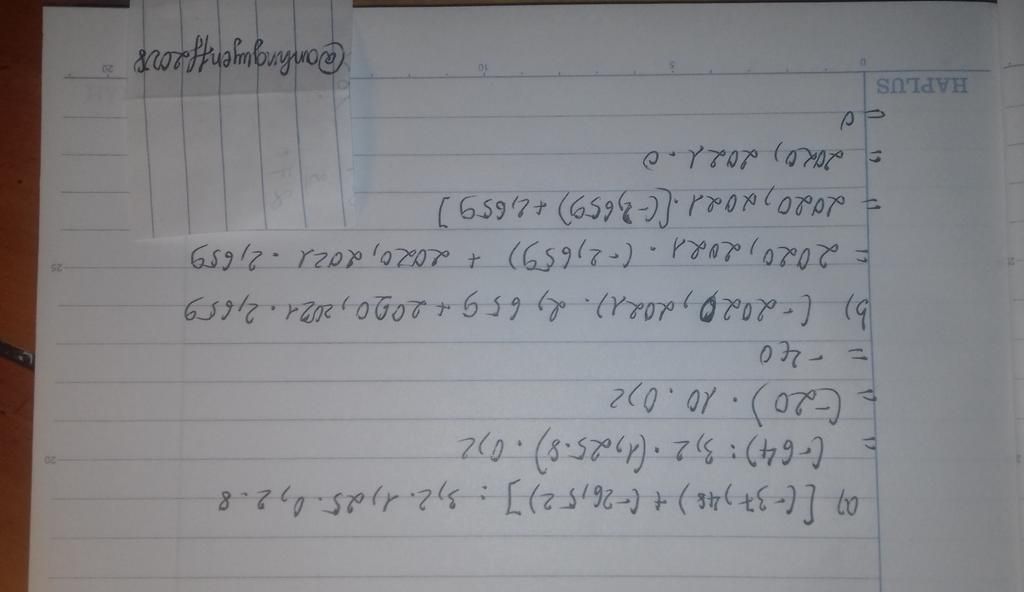 20
a) [(-37,48) + (-26,52)] : 3,2 . 1,25 . 0,2 . 8
= (-64) : 3,2 . (1,25.8) . 0,2
= (-20) . 10 . 0,2
= -40
b) (-2020,2021) . 2,659 + 2020,2021 . 2,659
25
= 2020,2021 . (-2,659) + 2020,2021 . 2,659
= 2020,2021 . [(-2,659) + 2,659]
= 2020,2021 . 0
= 0
HAPLUS
0 5 10 20
@anhnguyenff2028